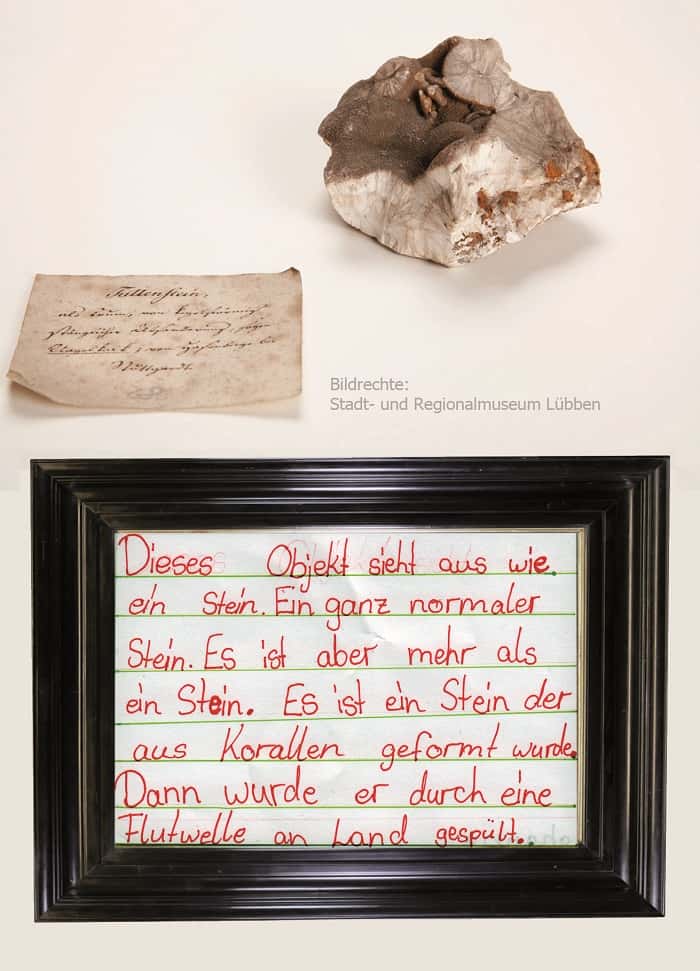 Tuttenstein,
als
von
Stuttgardt.
Bildrechte:
Stadt- und Regionalmuseum Lübben
Dieses Objekt sieht aus wie
ein Stein. Ein ganz normaler
Stein. Es ist aber mehr als
ein Stein. Es ist ein Stein der
aus Korallen geformt wurde.
Dann wurde er durch eine
Flutwelle an Land gespült.